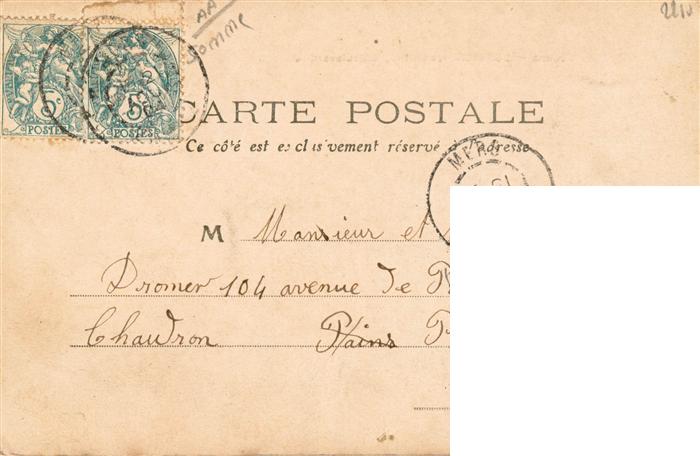 AA
Somme
2210
5c 5c
POSTES POSTES
CARTE POSTALE
Ce côté est exclusivement réservé à l'adresse
MERS
M Monsieur et
Dromer 104 avenue de
Chaudron Plains